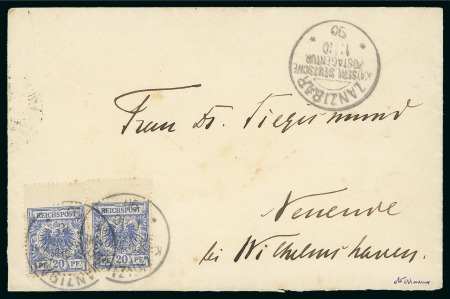 ZANZIBAR
KAISERL. DEUTSCHE
POSTAGENTUR
90
Frau Dr. Siegismund
Neuende
bei Wilhelmshaven.
REICHSPOST REICHSPOST
PF. 20 PF. 20 PF.
ZANZIBAR